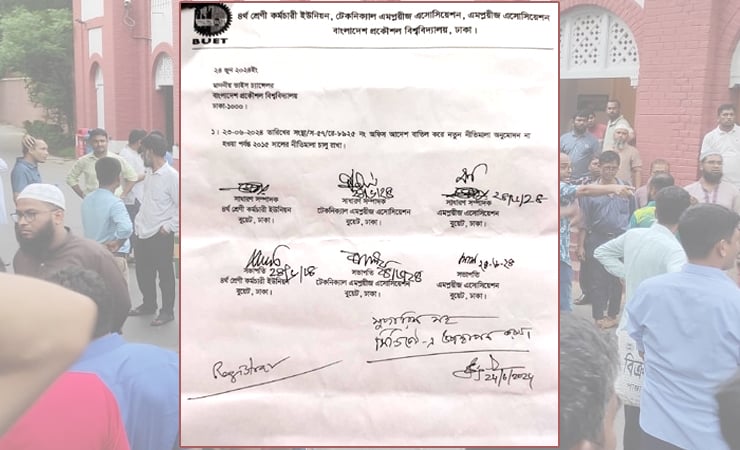 BUET
৪র্থ শ্রেণী কর্মচারী ইউনিয়ন, টেকনিক্যাল এমপ্লয়ীজ এসোসিয়েশন, এমপ্লয়ীজ এসোসিয়েশন
বাংলাদেশ প্রকৌশল বিশ্ববিদ্যালয়, ঢাকা।
২৪ জুন ২০২৪ইং
মাননীয় ভাইস চ্যান্সেলর
বাংলাদেশ প্রকৌশল বিশ্ববিদ্যালয়
ঢাকা-১০০০।
১। ২৩-০৬-২০২৪ তারিখের সংস্থা/স-৫৭/রে-৮৯২৫ নং অফিস আদেশ বাতিল করে নতুন নীতিমালা অনুমোদন না
হওয়া পর্যন্ত ২০১৫ সালের নীতিমালা চালু রাখা।
সাধারণ সম্পাদক
৪র্থ শ্রেণী কর্মচারী ইউনিয়ন
বুয়েট, ঢাকা।
সাধারণ সম্পাদক
টেকনিক্যাল এমপ্লয়ীজ এসোসিয়েশন
বুয়েট, ঢাকা।
২৪/৬/২৪
সাধারণ সম্পাদক
এমপ্লয়ীজ এসোসিয়েশন
বুয়েট, ঢাকা।
সভাপতি
৪র্থ শ্রেণী কর্মচারী ইউনিয়ন
বুয়েট, ঢাকা।
সভাপতি
টেকনিক্যাল এমপ্লয়ীজ এসোসিয়েশন
বুয়েট, ঢাকা।
২৪-৬-২৪
সভাপতি
এমপ্লয়ীজ এসোসিয়েশন
বুয়েট, ঢাকা।
সুপারিশ সহ
সিন্ডিকেট-এ উপস্থাপন করুন।
Registrar
24/6/2024